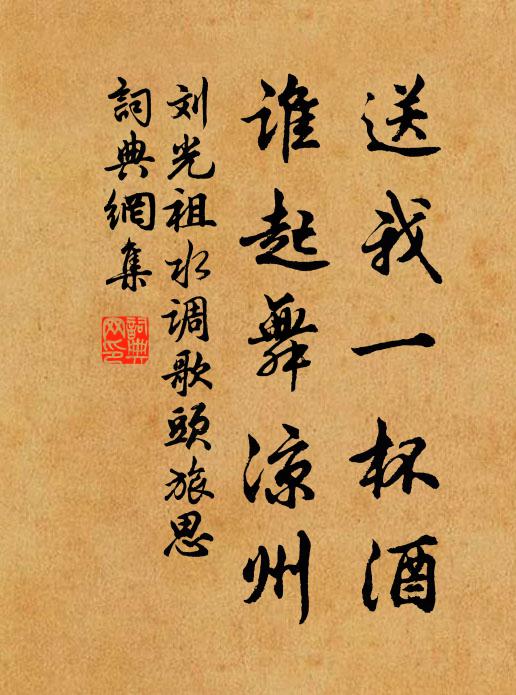 送我一杯酒
谁起舞凉州
刘光祖水调歌头旅思
词典網集
詞典
网印